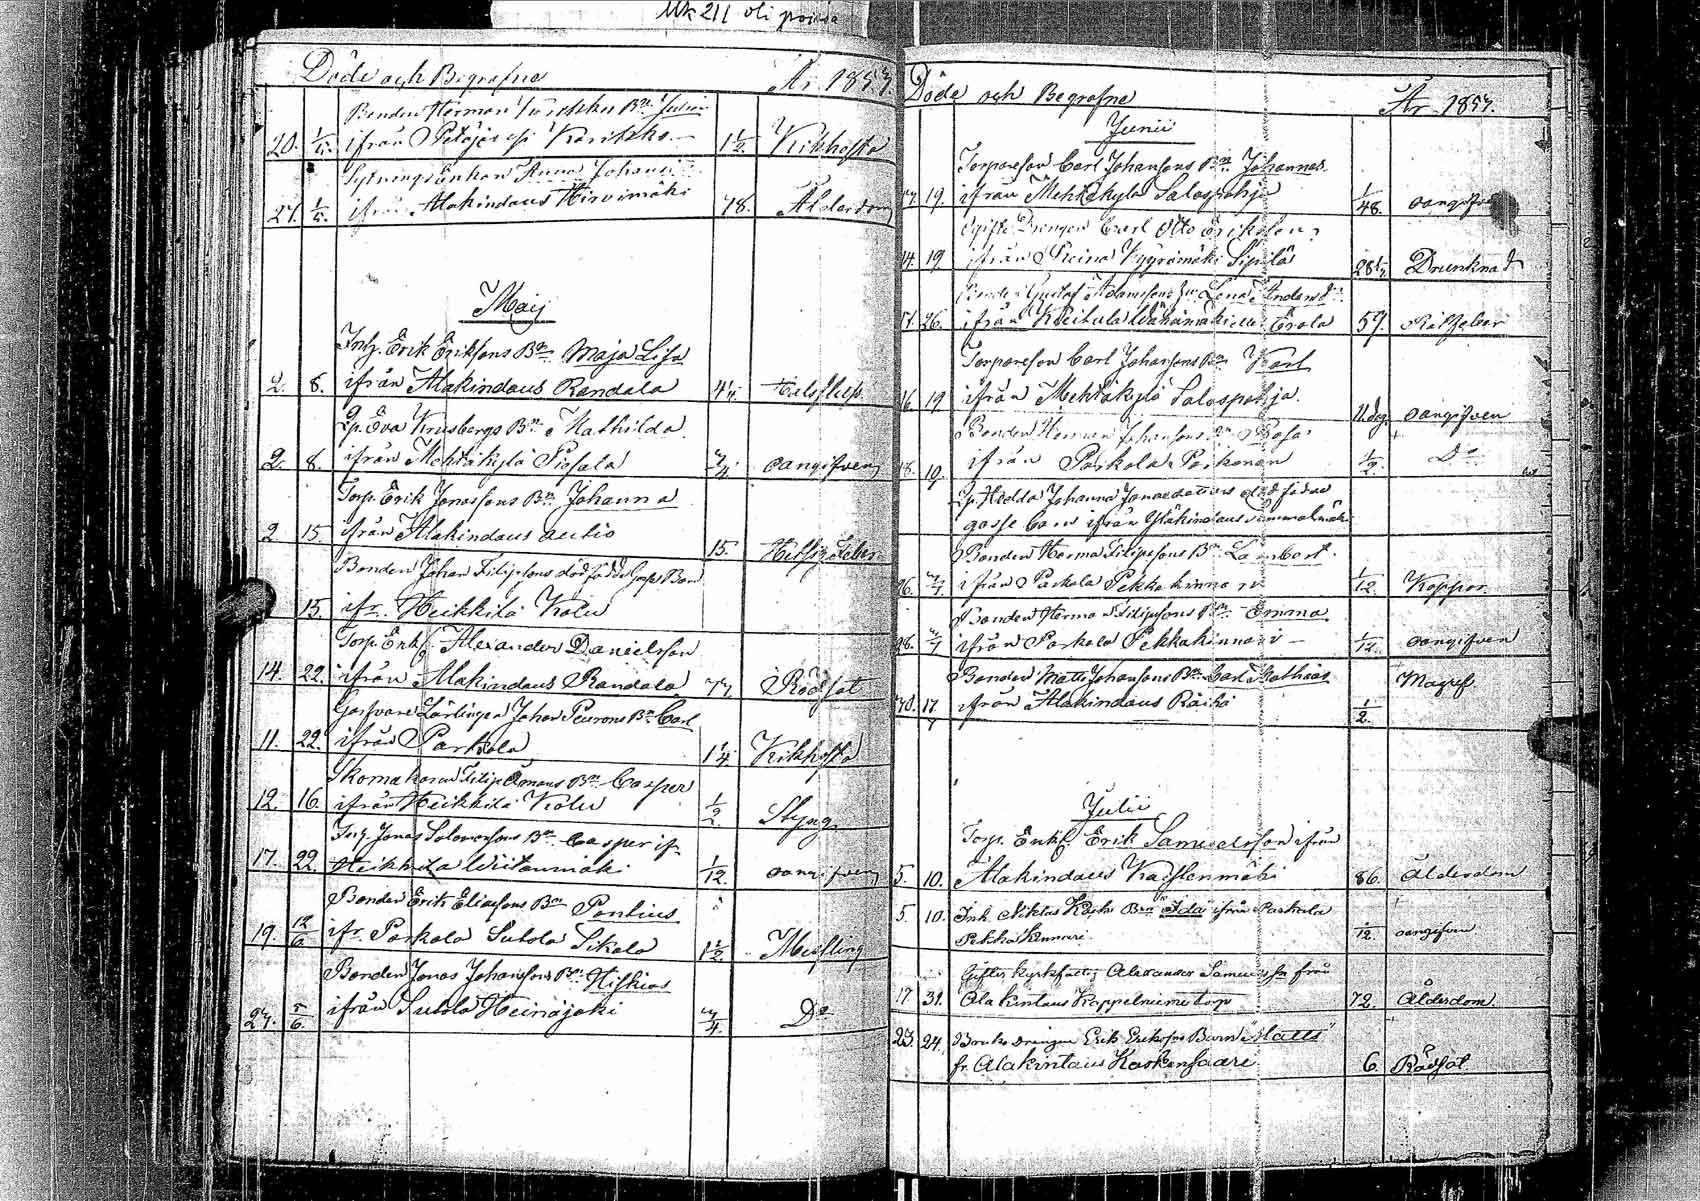 Mk 211 oli poissa
Döde och Begrafne År 1857.
Bonden Herman Bn
20. 1/5. ifrån Petäjäsesi Karikko 1 1/2 Kikhosta
Sytnings Enkan Anna Johans
27. 1/5. ifrån Alakindaus Hirvimäki 78. Ålderdom
Maij
Inh. Erik Eriksons Bn Maja Lisa
2. 8. ifrån Alakindaus Randala 4 1/4 Halsfluss
Qp. Eva Krusbergs Bn Mathilda
2. 8. ifrån Mehtäkylä Pispala 3/4 oangifven
Torp. Erik Jonassons Bn Johanna
2 15. ifrån Alakindaus autio 15. Hetsig feber
Bonden Johan Filipsons dödfödde Gosse Barn
15. ifr. Heikkilä Kolu
Torp. Enkf. Alexander Danielsson
14. 22. ifrån Alakindaus Randala 77. Rödsot
Garfvare Lärlingen Johan Peurons Bn Carl
11. 22. ifrån Parkola 1 1/4 Kikhosta
Skomakaren Filip Åmans Bn Casper
12. 16. ifrån Heikkilä Kolu 1/2. Styng
Torp. Jonas Salomonsons Bn Casper ifr
17. 22. Heikkilä Wiitamäki 1/12. oangifven
Bonden Erik Eliassons Bn Pontius
19. 12/6 ifr. Parkola Sutela Sikala 1 1/2 Messling
Bonden Jonas Johanssons Bn Hiskias
27. 5/6. ifrån Sutela Heinäjoki 3/4. Do
Döde och Begrafne År 1857.
Junii
Torpareson Carl Johansons Bn Johannes
19. ifrån Mehtäkylä Salospohja 1/48. oangifven
Ogifte Drängen Carl Otto Erikson
14. 19. ifrån Sipilä 28 1/2 Drunknad
Bonden Gustaf Adamsons hu Lena Andersdr
26. ifrån Erola 57. Rötfeber
Torpareson Carl Johansons Bn Karl
16. 19 ifrån Mehtäkylä Salospohja 11 dag. oangifven
Bonden Herman Johansons Bn Rosa
18. ifrån Parkola Parkonen 1/2. Do
Qp. Hedda Johanna Jonaedotters dödfödde
gosse barn ifrån Yläkindaus
Bonden Herman Filipsons Bn Lambert
26. ifrån Parkola Pekkakinnari 1/12. Koppor.
Bonden Herman Filipsons Bn Emma
28. ifrån Parkola Pekkakinnari 1/12. oangifven
Bonden Matts Johansons Bn Carl Mathias
17 ifrån Alakindaus Räihä 1/2. Magref
Julii
Torp. Enkf. Erik Samuelsson ifrån
5. 10. Alakindaus Kaistenmäki 86. Ålderdom
5. 10. Inh. Niklas Bn "Ida" ifrån Parkola
Pekkakinnari 1/12. oangifven
Gifte Kyrkfattig Alexander Samuelsson från
17. 31. Alakintaus Kappelniemi torp 72. Ålderdom
23. 24. Bruks Drängen Erik Eriksons Barn "Matts"
fr. Alakintaus Koskensaari 6. Rödsot